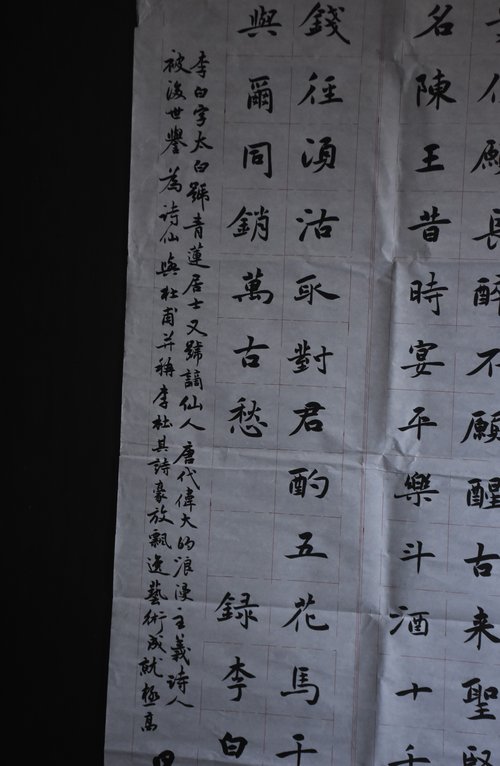 願長醉不願醒古来聖賢
名陳王昔時宴平樂斗酒十千
錢徑須沽取對君酌五花馬千
與爾同銷萬古愁 録李白
李白字太白號青蓮居士又號謫仙人唐代偉大的浪漫主義詩人
被後世譽為詩仙與杜甫并稱李杜其詩豪放飄逸藝術成就極高